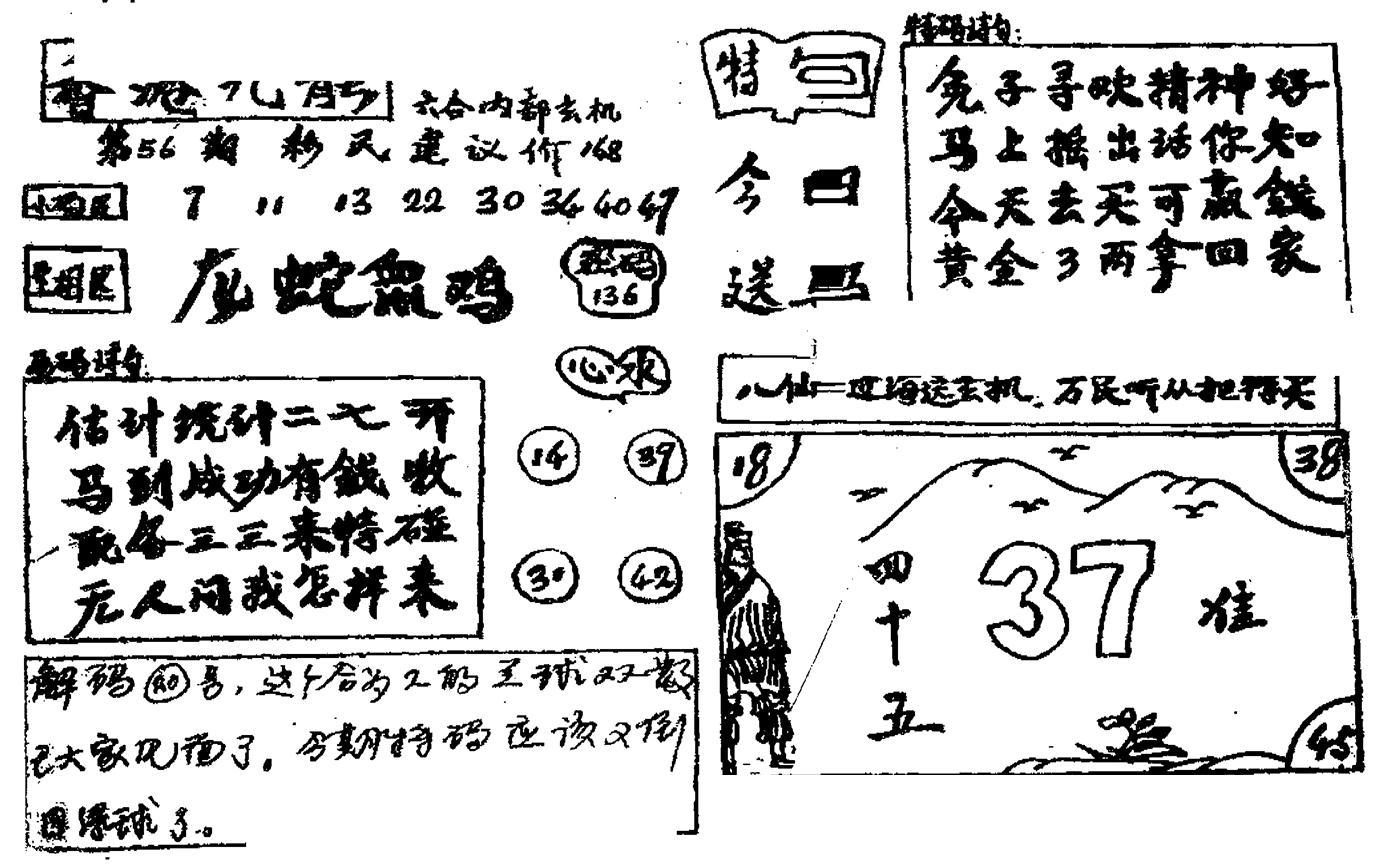 六合内部玄机
第56期 彩民建议价168
7 11 13 22 30 34 40 47
生肖区
龙蛇鼠鸡
密码
136
估计统计二七开
马到成功有钱收
配备三三来特碰
无人问我怎样来
心水
14 39
30 42
解码20号,这个合为2的兰球又又散
已大家见面了。今期特码应该又倒
图绿球了。
特
今
送
特码诗句:
兔子寻欢精神好
马上摇出话你知
今天去买可赢钱
黄金3两拿回家
八仙过海送玄机 万民听从把特买
18 38
四十五
37
准
45